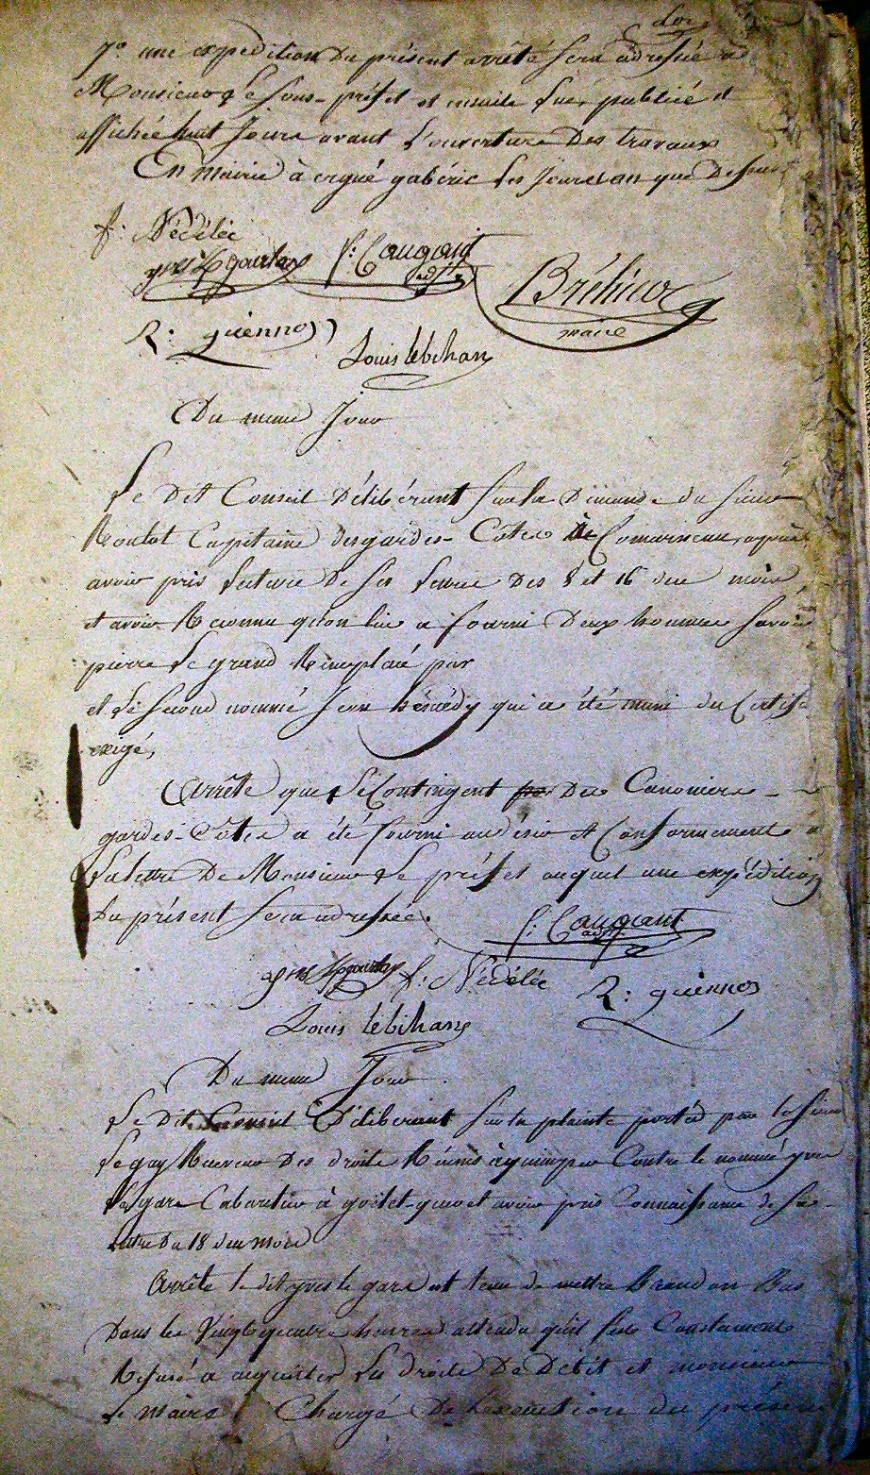 7° une expédition du présent arrêté sera adressée à
Monsieur Le Sous-préfet et ensuite sur publié et
affichée huit Jours avant L'ouverture Des travaux
En Mairie à ergué gabéric Les Jour et an que Dessus
f: Nédélec
f: Caugant
adjt
Bréhier
maire
R: guennos
Louis Lebihan
Du meme Jour
Le Dit Conseil Délibérant Sur la Demande du Sieur
Roulot Capitaine des gardes-Côtes De Comarneau, après
avoir pris Lecture De Ses Lettres Des 8 et 16 du mois
et avoir Reconnu qu'on lui a fourni Deux hommes Savoir
pierre Le grand Remplacé par
et Le Second nommé Jean qui a été muni du Certifi
exigé,
Arrête que Le Contingent Des Canoniers
gardes-Côtes a été fourni au désir et Conformement à
La lettre De Monsieur Le préfet auquel une expédition
Du présent Sera adressée.
f: Caugant
adjt
f: Nédélec
R: guennos
Louis Lebihan
Du meme Jour
Le Dit Conseil Déliberant Sur la plainte porté par le Sieur
Le gay Receveur Des droits Réunis à quimper Contre le nommé yves
Le gars Cabaretier à et avoir pris Connaissance de Sa
Lettre Du 18 du mois
Arrête le dit yves le gars est tenu de mettre Brandon Bas
Dans les Vingt quatre heures attendu qu'il s'est Constament
Refusé a acquitter Les droits De Débit et monsieur
Le maire Chargé De Lexécution du présent